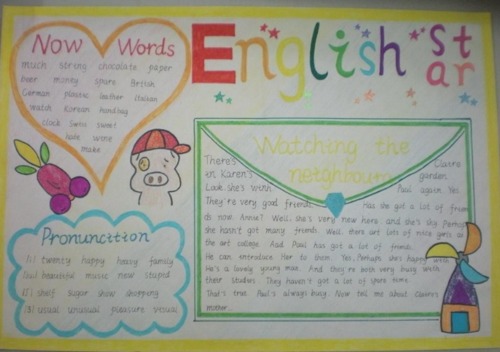 Now Words
much string chocolate paper
beer money spare British
German plastic leather Italian
watch Korean handbag
clock Swiss sweet
have wine
make
English Star
Pronuncttion
/i/ twenty happy heavy family
/u:/ beautiful music now stupid
/ʃ/ shelf sugar show shopping
/ʒ/ usual unusual pleasure visual
Watching the
neighbours
There's Claire
in Karen's garden.
Look. she's with Paul again. Yes.
They're very good friends. Has she got a lot of frien
ds now, Annie? Well, she's very new here. and she's shy. Perhaps
she hasn't got many friends. Well, there art lots of nice girls at
the art college. And Paul has got a lot of friends.
He can introduce Her to them. Yes, Perhaps she's happy with
He's a lovely young man. And they're both very busy with
their studies. They haven't got a lot of spare time.
That's true. Paul's always busy. Now tell me about Claire's
mother.